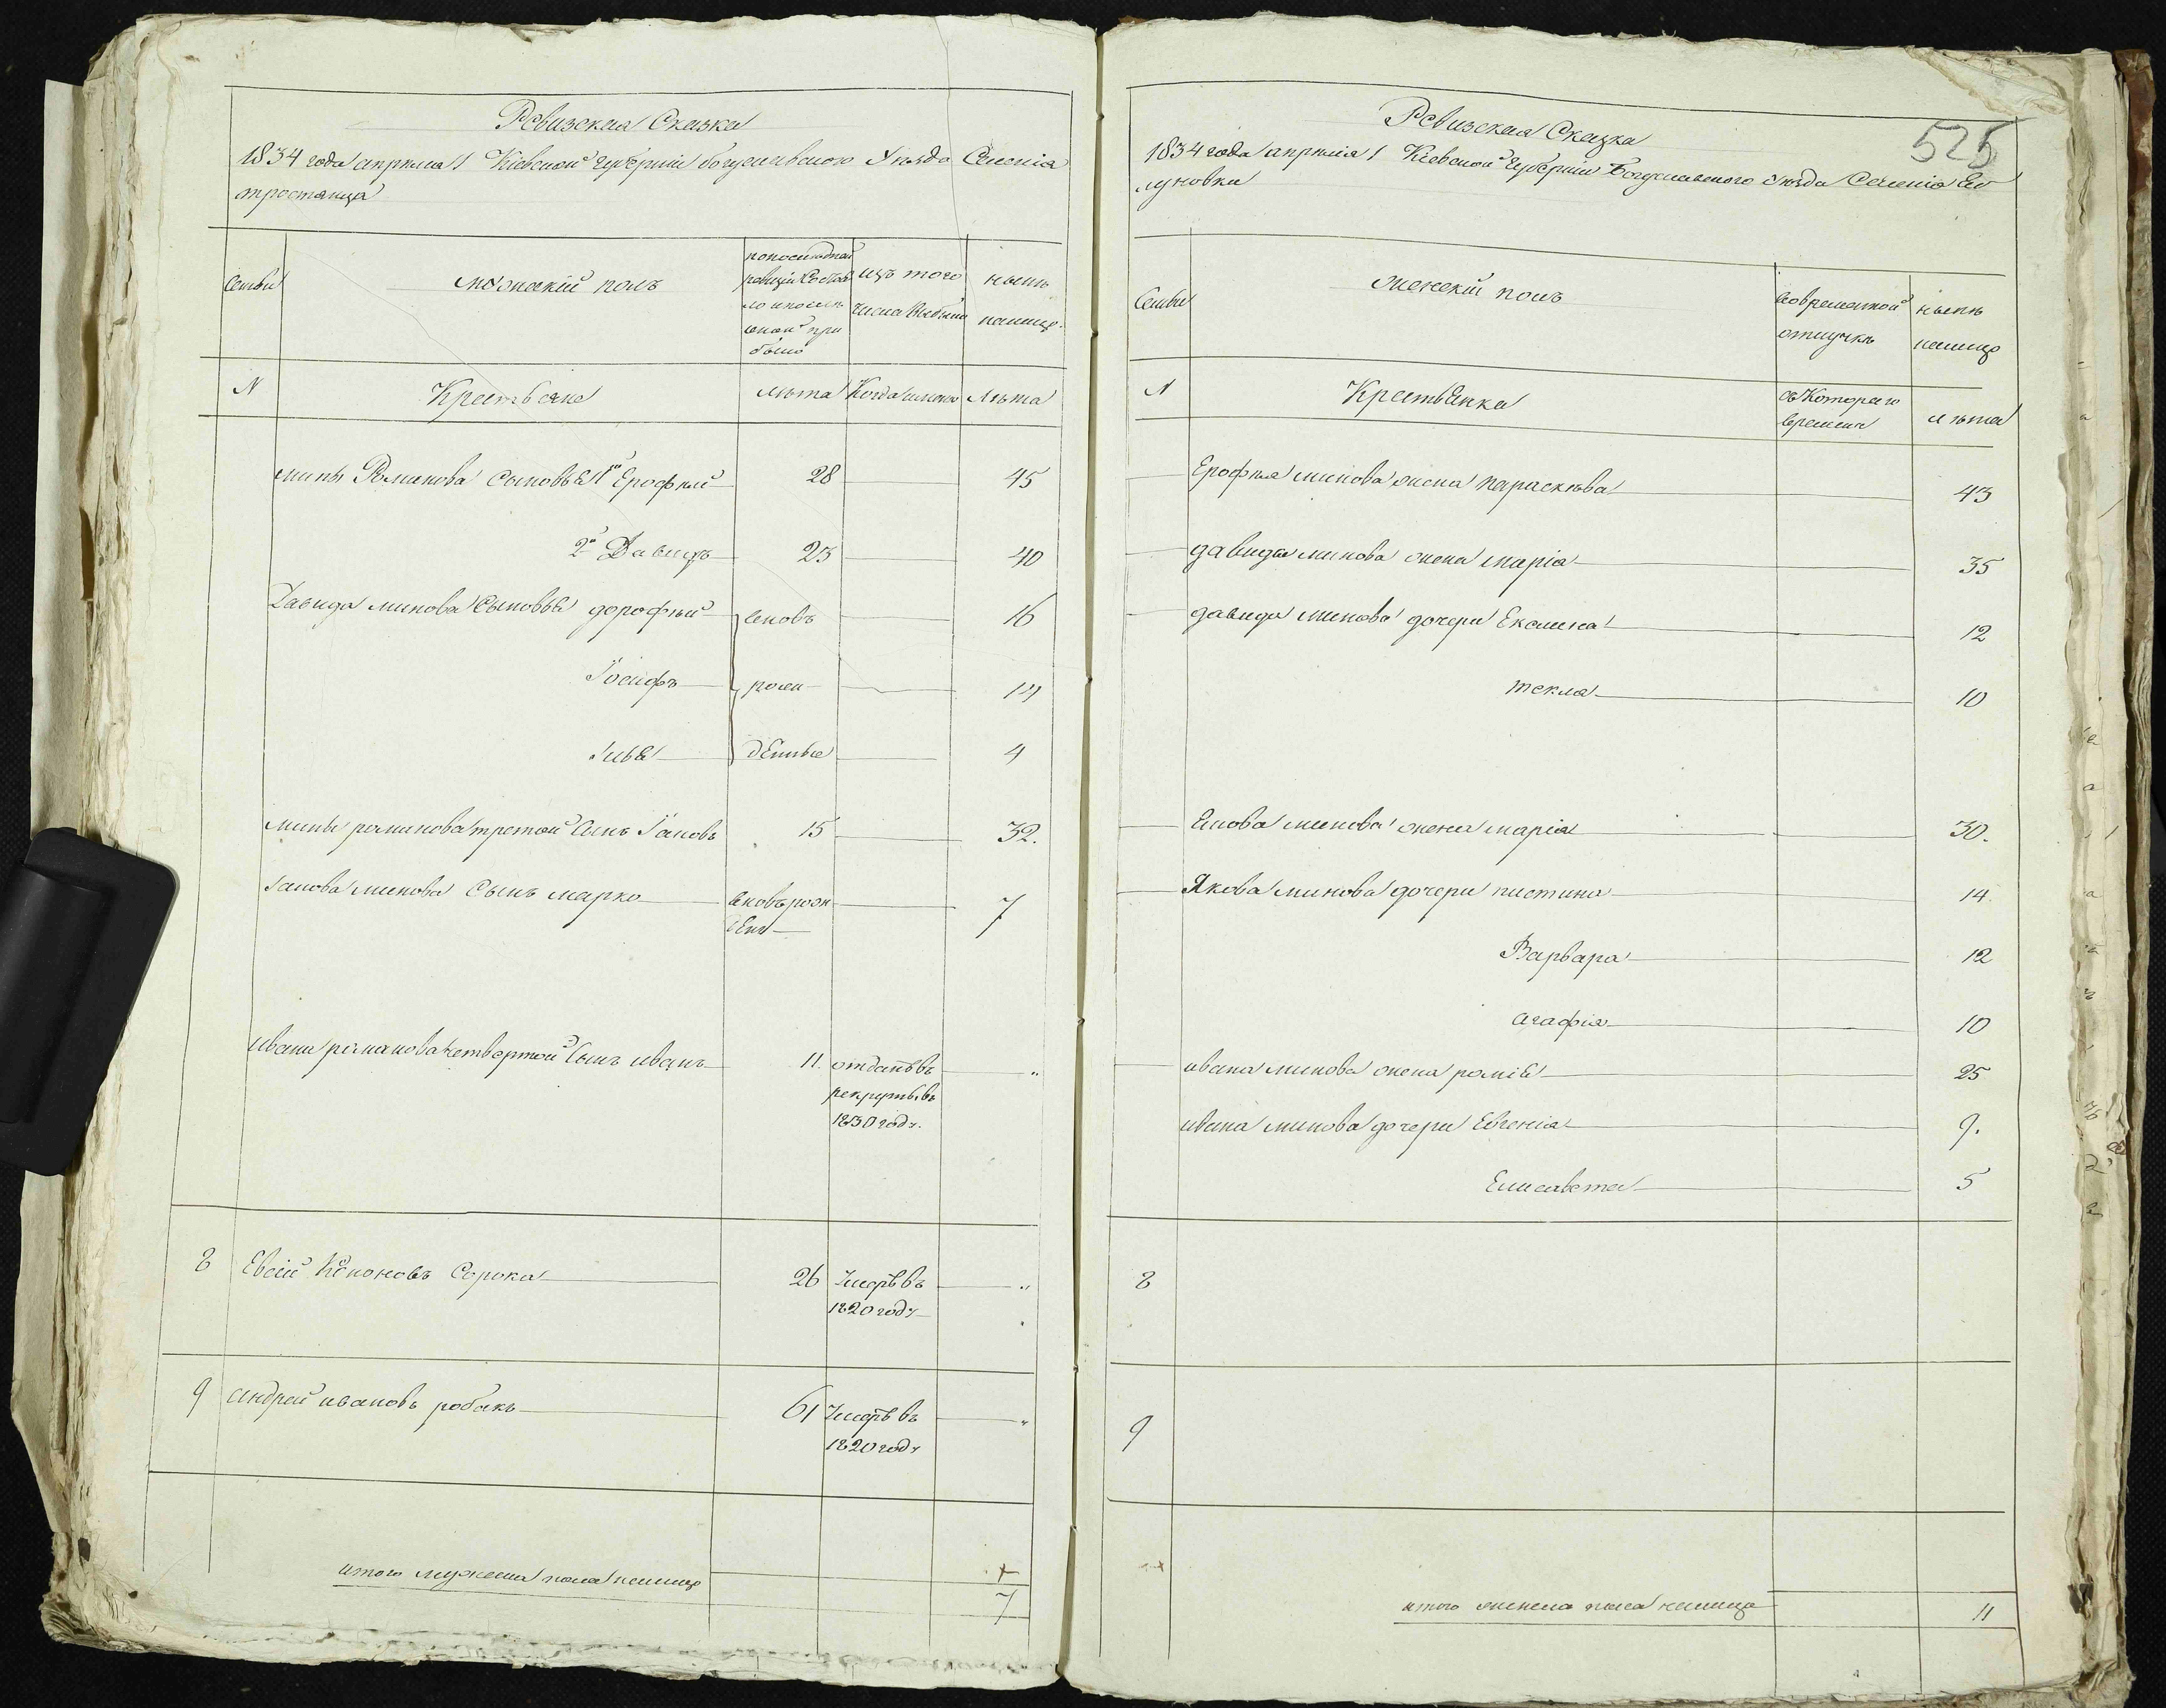 Ревизская Сказка
1834 года апреля 1 Кіевской губерніи богуславского Уезда Селенія
тростянца
Семьи
мужескій полъ
попоследней
ревизіи Состоя
ло и после
оной при
было
изъ того
числа выбыло
ныне
налицо.
N
Крестьяне
лета
Когда именно
Лета
мины Романова Сыновья 1й Ерофей 28 45
2й Давидъ 23 40
Давида минова Сыновья дорофей вновь 16
Іосифъ рожд 14
Илья дённые 4
мины романова третой Сынъ Іаковъ 15 32.
Іакова минова Сынъ марко вновьрож 7
дёнъ
Ивана романова четвертой Сынъ иванъ 11. отданъ въ "
рекруты въ
1830 году.
8 Евсій Кононовъ Сорока 26 Умеръ въ "
1820 году
9 андрей ивановъ робакъ 61 Умеръ въ "
1820 году
итого мужеска пола налицо
7
525
Ревизская Сказка
1834 года апреля 1 Кіевской Губерніи Богуславского Уезда Селенія
луновки
Семьи
женскій полъ
вовременной
отлучке
ныне
налицо
N
Крестьянка
съ Котораго
времени
лета
Ерофея минова жена параскева 43
давида минова жена марія 35
давида минова дочери 12
текла 10
Якова минова жена марія 30.
Якова минова дочери пистина 14.
Варвара 12
агафія 10
ивана минова жена 25
ивана минова дочери Евгенія 9.
Елисавета 5
8
9
итого женска пола налицо 11